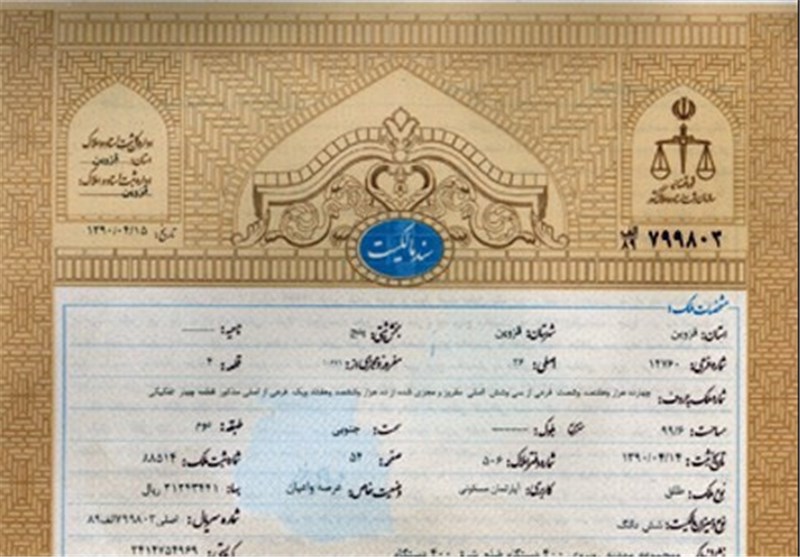 قوه قضائیه
سازمان ثبت اسناد و املاک کشور
الف
۸۹ ۷۹۹۸۰۳
سند مالکیت
اداره کل ثبت اسناد و املاک
استان: قزوین
اداره ثبت اسناد و املاک:
قزوین
تاریخ: ۱۳۹۰/۰۴/۱۵
مشخصات ملک:
استان: قزوین شهرستان: قزوین بخش ثبتی: پنج ناحیه: ــــــ
شماره فرعی: ۱۴۷۶۰ اصلی: ۳۶ مفروز و مجزی از: قطعه: ۴
شماره ملک به حروف: چهارده هزار و هفتصد و شصت فرعی از سی و شش اصلی مفروز و مجزی شده از ده هزار و هشتصد و هفتاد و یک فرعی از اصلی مذکور قطعه چهار تفکیکی
مساحت: ۹۹/۶ مترمربع بلوک: ــــــ سمت: جنوبی طبقه: دوم
تاریخ ثبت: ۱۳۹۰/۰۴/۱۴ شماره دفتر املاک: ۵۰۶ صفحه: ۵۴ شماره ثبت ملک: ۸۸۵۱۴
نوع ملک: طلق کاربری: آپارتمان مسکونی وضعیت خاص: عرصه واعیان بها: ۳۱۲۹۳۴۴۱ ریال
نوع و میزان مالکیت: شش دانگ شماره سریال: اصلی ۷۹۹۸۰۳الف۸۹
۳۴۱۴۷۵۴۹۶۹